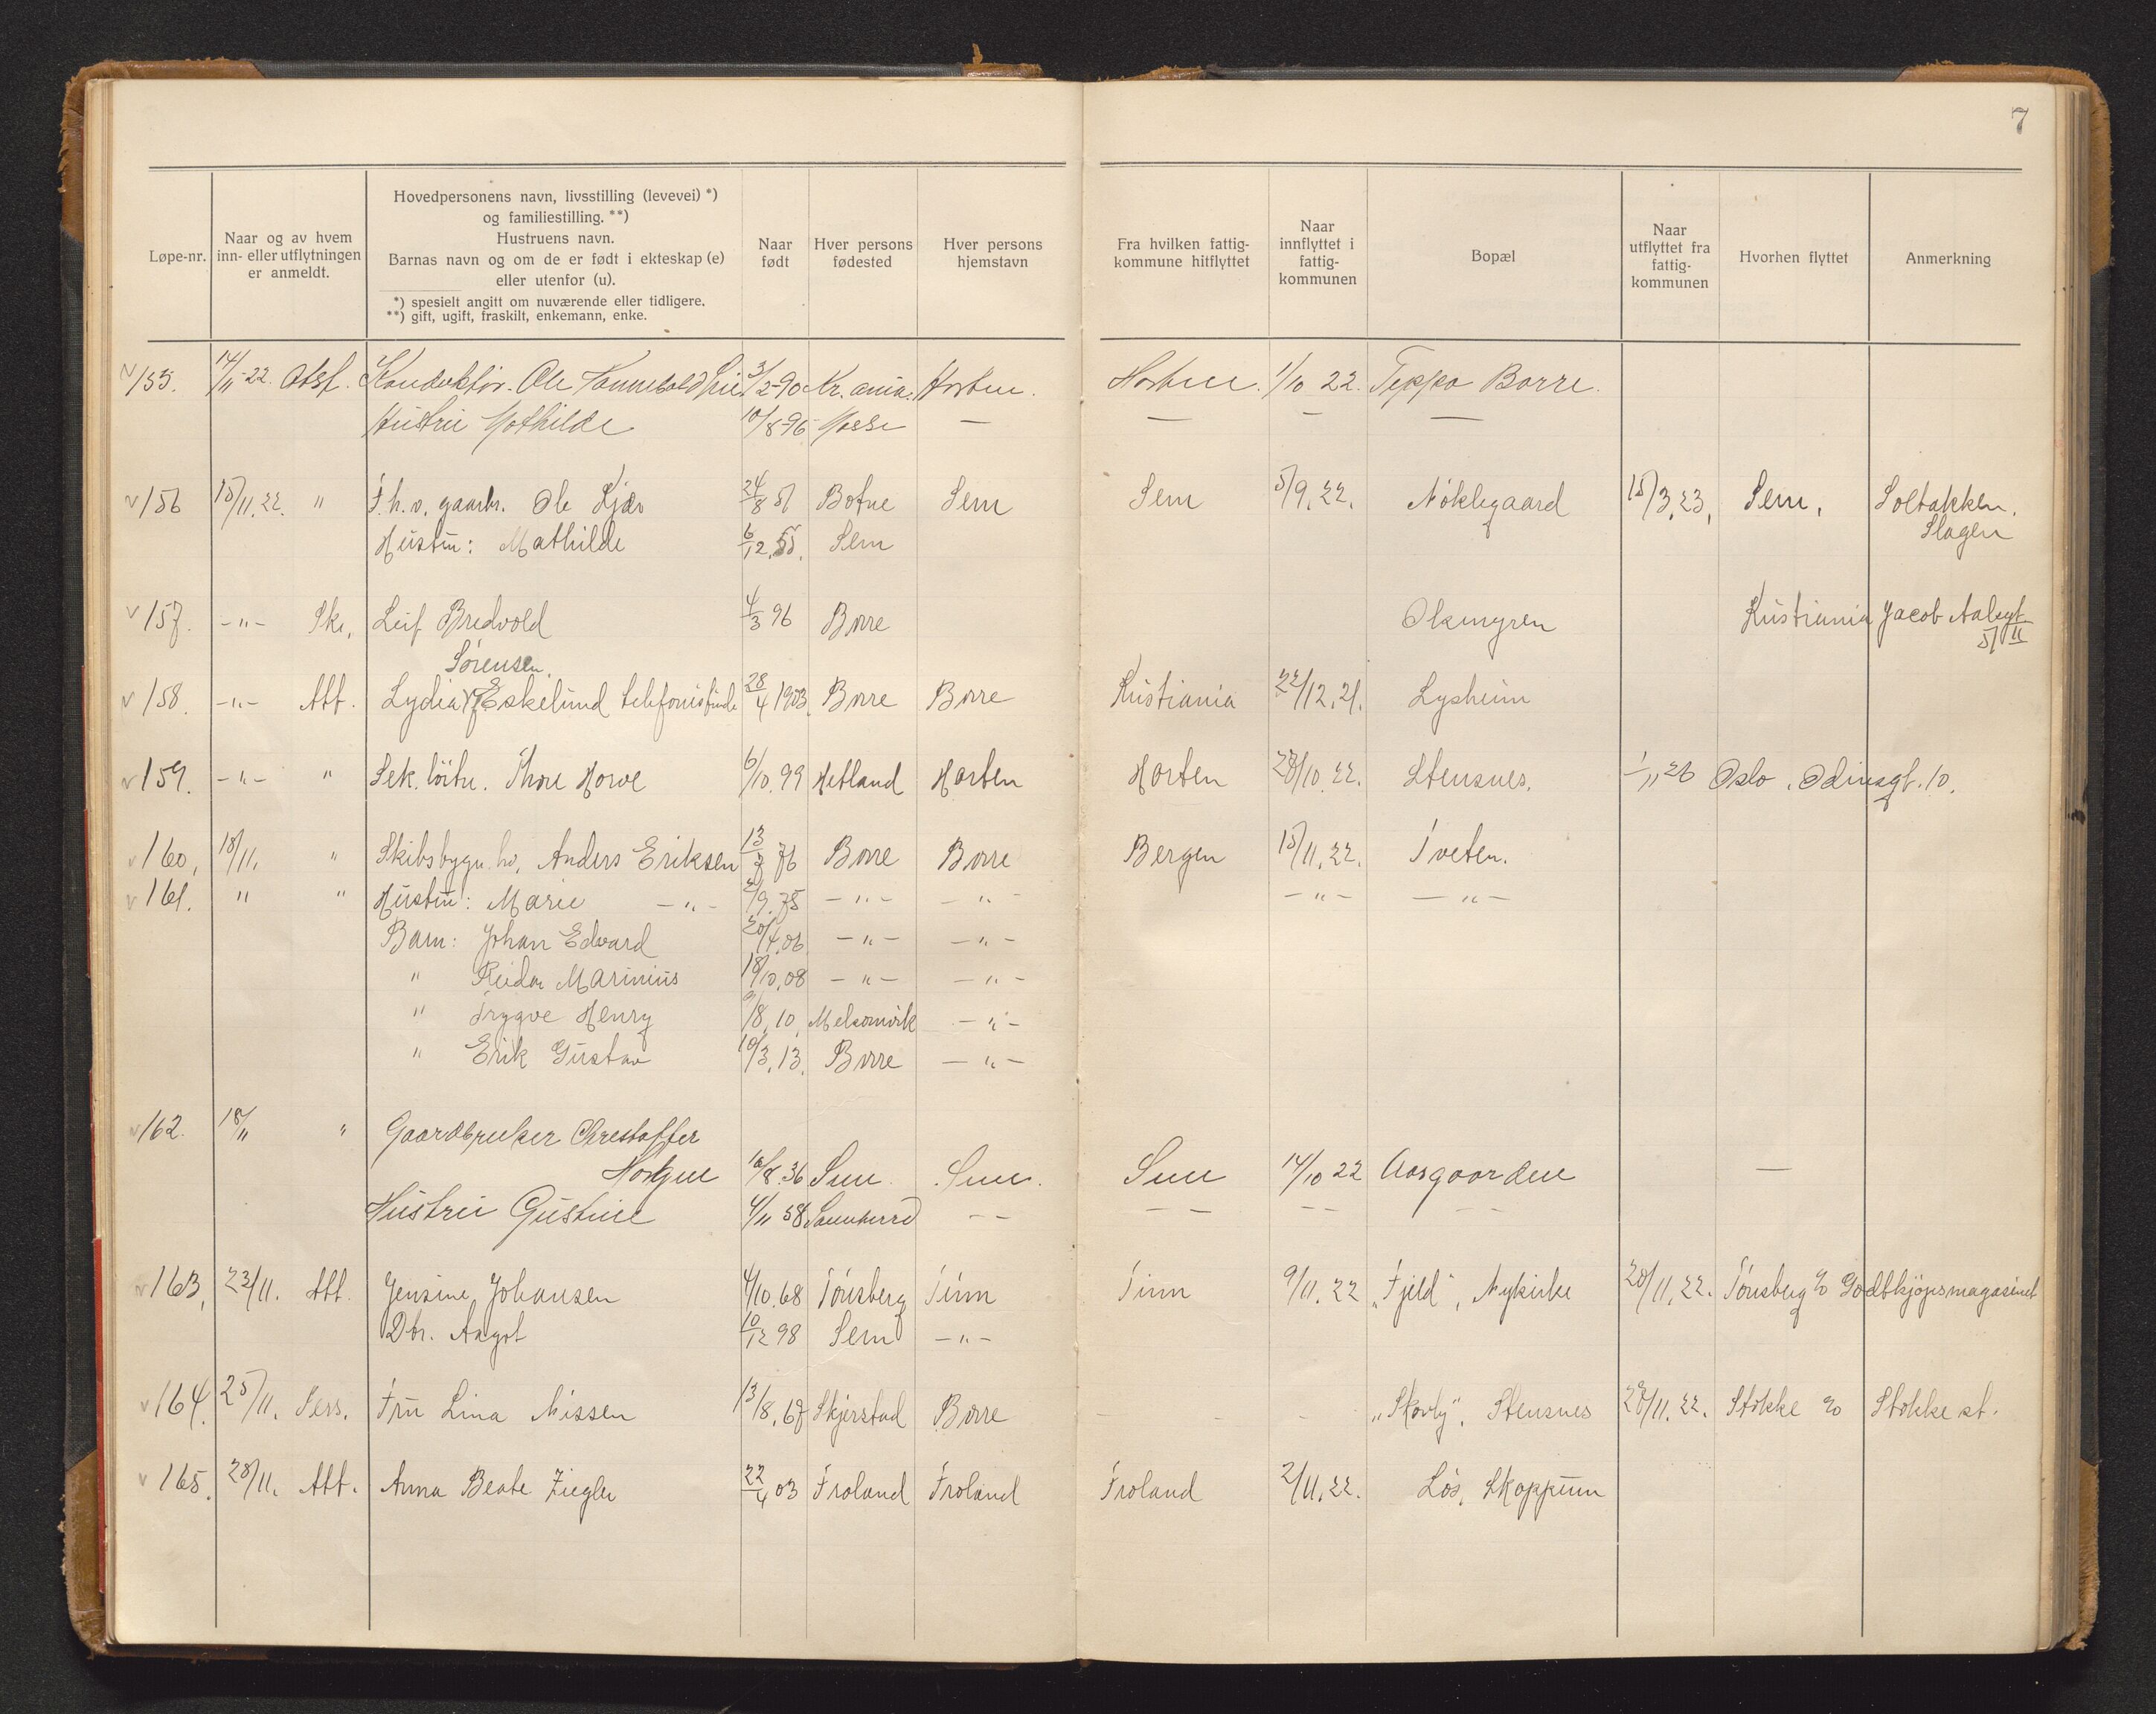 7
Løpe-nr.
Naar og av hvem
inn- eller utflytningen
er anmeldt.
Hovedpersonens navn, livsstilling (levevei) *)
og familiestilling. **)
Hustruens navn.
Barnas navn og om de er født i ekteskap (e)
eller utenfor (u).
*) spesielt angitt om nuværende eller tidligere.
**) gift, ugift, fraskilt, enkemann, enke.
Naar
født
Hver persons
fødested
Hver persons
hjemstavn
Fra hvilken fattig-
kommune hitflyttet
Naar
innflyttet i
fattig-
kommunen
Bopæl
Naar
utflyttet fra
fattig-
kommunen
Hvorhen flyttet
Anmerkning
155. 14/11-22. Konduktør. Ole 3/2-90 Kr.ania. Horten. Horten. 1/10 22. Teppo Borre.
Hustru Mathilde 10/8-96 Mosse — — — —
156 15/11.22. " F.h.v. gaarbr. Ole Kjær 24/8 51 Botne Sem Sem 5/9.22. Nøklegaard 15/3.23. Sem, Soltakken.
Hustru: Mathilde 6/12.55. Sem Slagen
157. -"- Sk., Leif Bredvold 4/3 96 Borre Kristiania Jacob Aalsgt
51 II
Sørensen
158. -"- Att. Lydia Eskelund telefonistinde 28/4 1903. Borre Borre Kristiania 22/12.21. Lysheim
159. -"- " Sek. løitn. Thore Horve 6/10.99 Hetland Horten Horten 28/10.22. Stensnes. 1/11 26 Oslo. Odinsgt. 10.
160, 18/11. " Skibsbygn. Anders Eriksen 13/7 76 Borre Borre Bergen 15/11.22. Tveten.
161. " " Hustru: Marie -"- 2/9.78 -"- -"- -"- -"-
Barn: Johan Edvard 20/4.06 -"- -"-
" Reidar Marinius 18/10.08 -"- -"-
" Trygve Henry 9/8.10 Melsomvik -"-
" Erik Gustav 10/3.13. Borre -"-
162. 18/11 " Gaardbruker Christoffer
16/8.36 Sem Sem. Sem 14/10 22 Aasgaarden —
Hustru Gustine 4/11 58 Sannherred — — — — —
163, 23/11. Att. Jensine Johansen 4/10.68 Tönsberg Tinn Tinn 9/11.22 „Fjeld", Nykirke 20/11.22. Tönsberg c/o Godtkjøpsmagasinet
Dtr. Aagot 10/12 98 Sem -"-
164. 25/11. Pers. Fru Lina Nissen 13/8.67 Skjerstad Borre - - - „Skovly", Stensnes 28/11.22. Stokke c/o Stokke st.
165. 28/11. Att. Anna Beate Ziegler 22/4 03 Froland Froland Froland 2/11.22. Løs, Skoppum